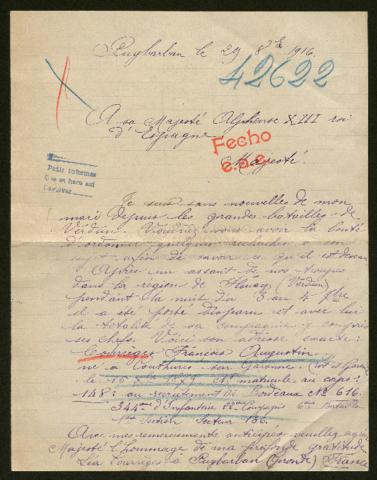 Puybarban le 29 8bre 1916.
42622
A sa Majesté Alphonse XIII roi
d'Espagne
Fecho
Majesté.
Pedir informes
Je suis sans nouvelles de mon
mari depuis les grandes batailles de
Verdun. Voudriez-vous avoir la bonté
d'ordonner quelques recherches à son
sujet afin de savoir ce qu'il est devenu
Après un assaut de nos troupes
dans la région de Fleury (Verdun)
pendant la nuit du 3 au 4
il a été porté disparu et avec lui
la totalité de sa compagnie y compris
ses chefs. Voici son adresse exacte:
François Augustin
né à Couthures sur Garonne (Lot et Gar)
le Nº matricule au corps:
148: au recrutement de Bordeaux Nº 616.
344me d'Infanterie Compagnie 6e Bataillon
Section Secteur 136.
Avec mes remerciements anticipés veuillez agréer
Majesté l'hommage de ma profonde gratitude
à Puybarban (Gironde) France